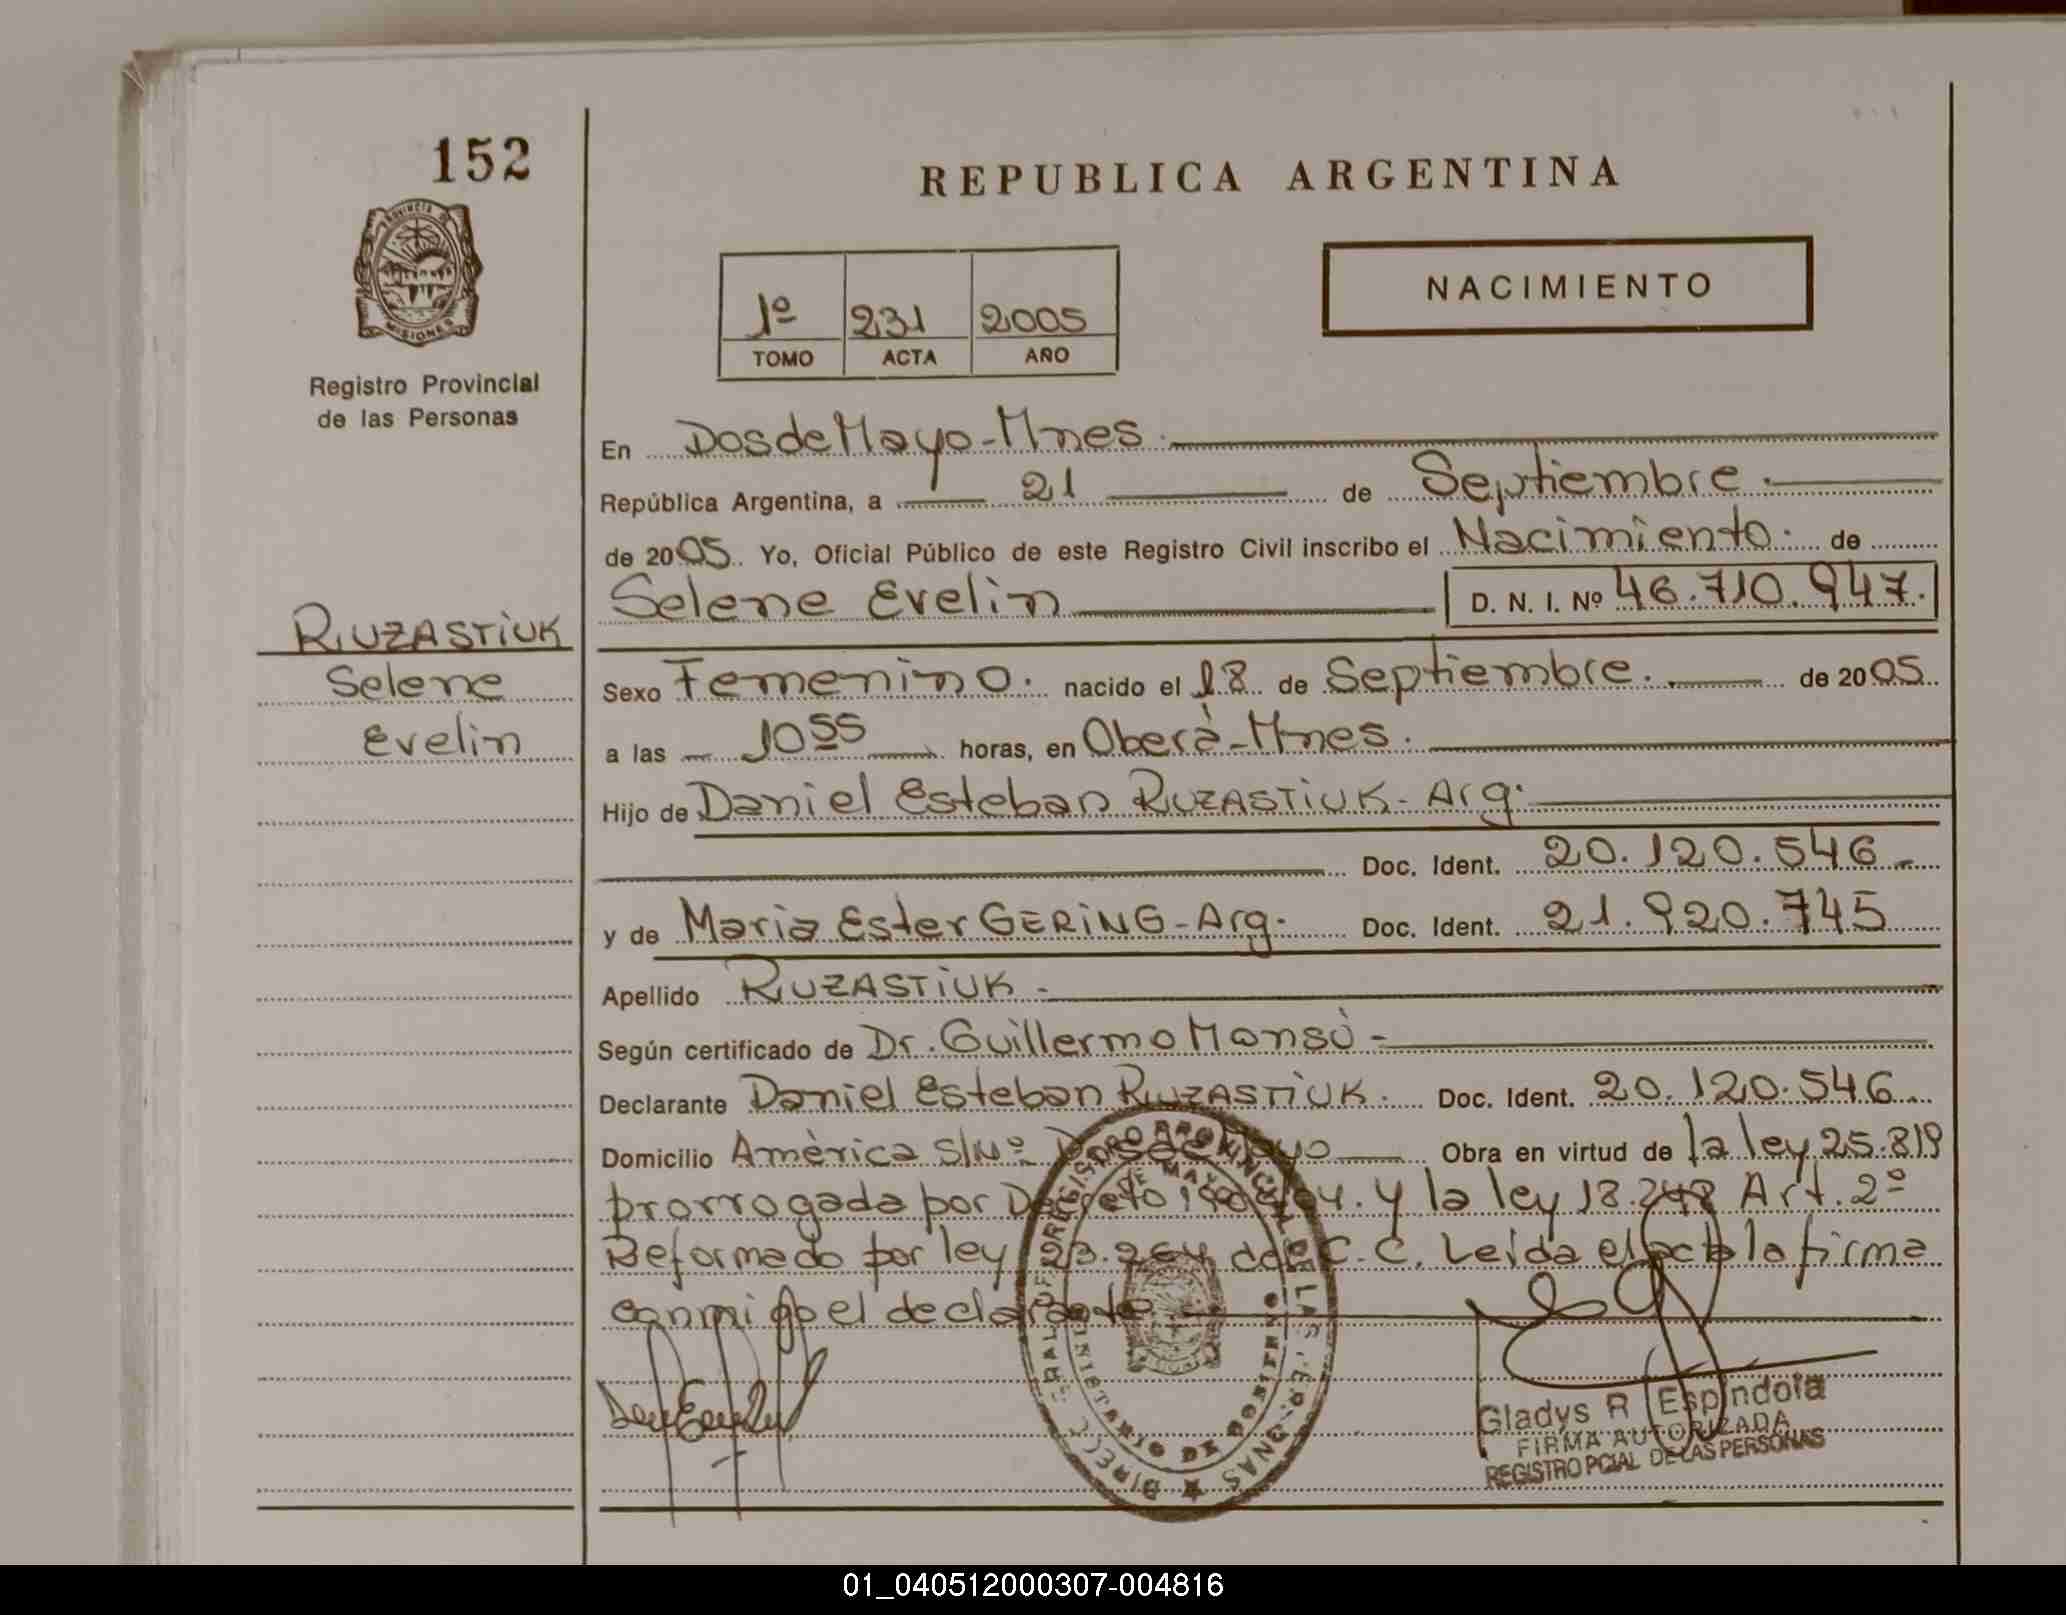 152
REPUBLICA ARGENTINA
PROVINCIA DE
MISIONES
Registro Provincial
de las Personas
1º 231 2005
TOMO ACTA AÑO
NACIMIENTO
En Dos de Mayo - Mnes.
República Argentina, a 21 de Septiembre.
de 2005. Yo, Oficial Público de este Registro Civil inscribo el Nacimiento. de
Selene Evelin D. N. I. Nº 46.710.947.
RUZASTIUK
Selene
Evelin
Sexo Femenino. nacido el 18 de Septiembre. de 2005
a las 10 55 horas, en Oberà - Mnes.
Hijo de Daniel Esteban RUZASTIUK - Arg.
Doc. Ident. 20.120.546
y de Maria Ester GERING - Arg. Doc. Ident. 21.920.745
Apellido RUZASTIUK -
Según certificado de Dr. Guillermo Monsò -
Declarante Daniel Esteban RUZASTIUK. Doc. Ident. 20.120.546
Domicilio Amèrica S/Nº Dos de Mayo Obra en virtud de la ley 25.819
prorrogada por Decreto y la ley 18.248 Art. 2º
Reformado por ley 23.264 del C.C. Leida el acta la firma
conmigo el declarante
Gladys R Espindola
FIRMA AUTORIZADA
REGISTRO PCIAL DE LAS PERSONAS
01_040512000307-004816